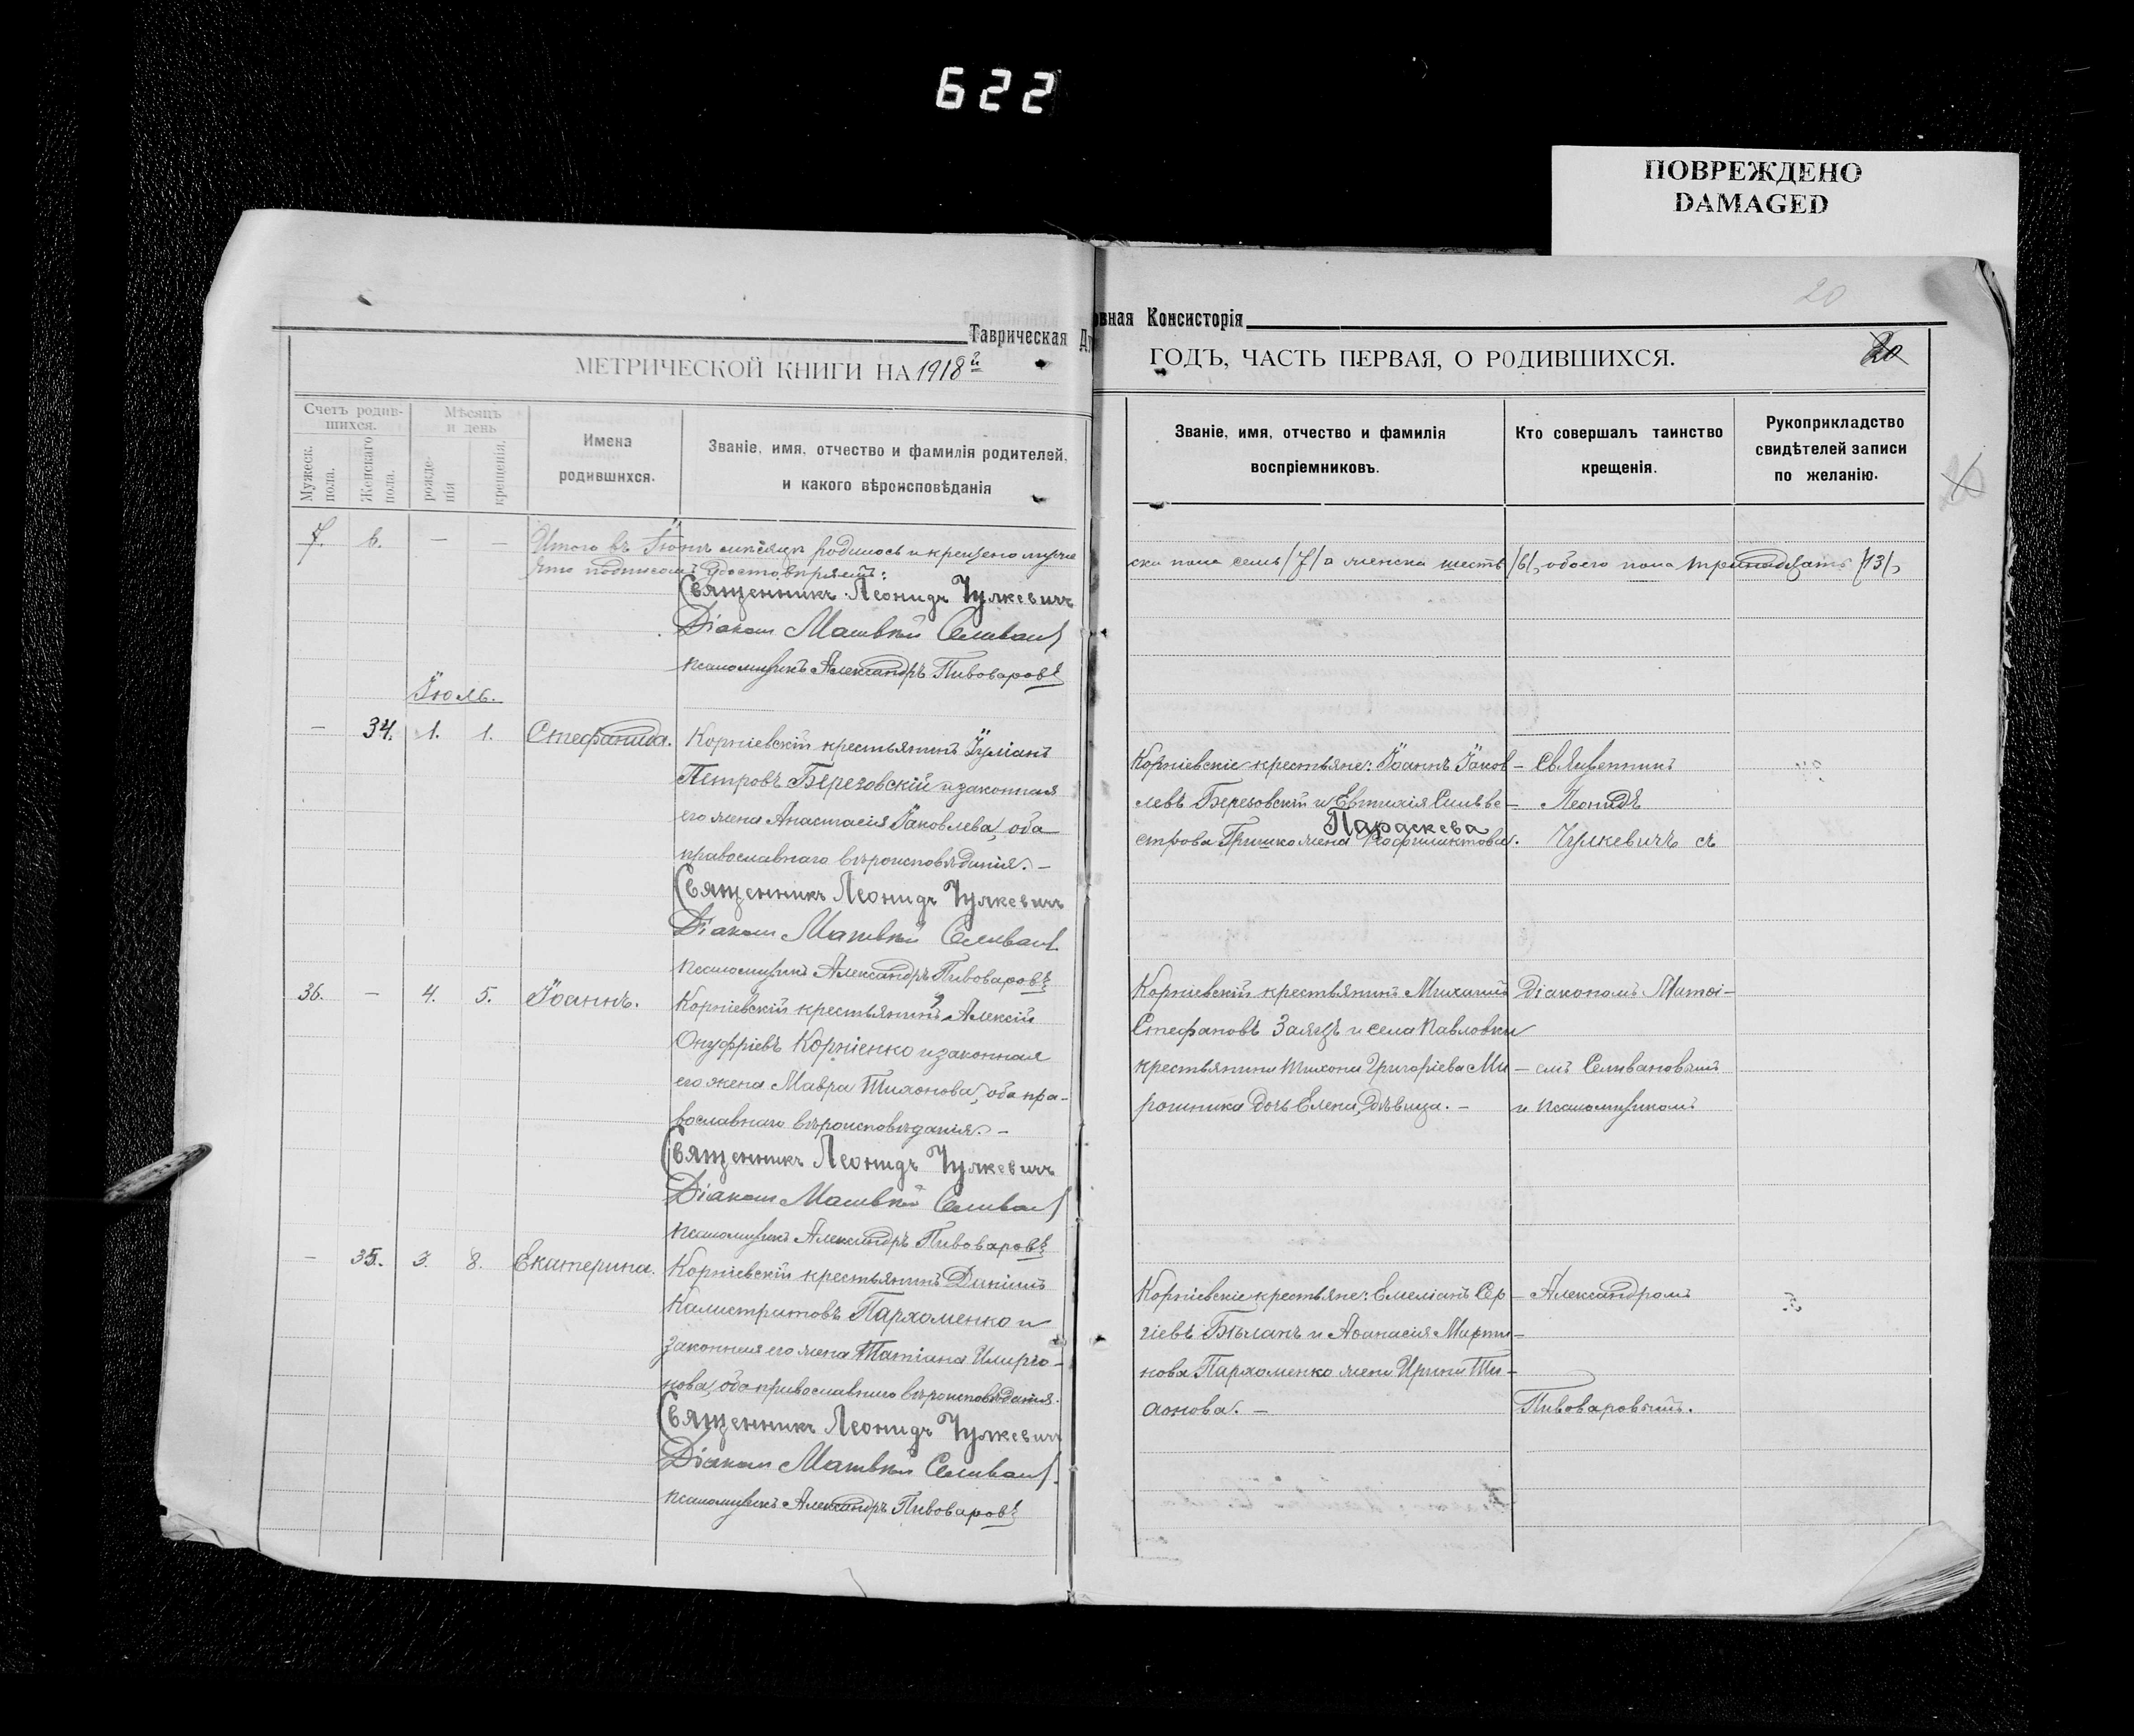 622
ПОВРЕЖДЕНО
DAMAGED
20
Таврическая Д
овная Консисторія
МЕТРИЧЕСКОЙ КНИГИ НА 1918й
ГОДЪ, ЧАСТЬ ПЕРВАЯ, О РОДИВШИХСЯ.
20
Счетъ родив-
шихся.
Мужеск.
пола.
Женскаго
пола.
Мѣсяцъ
и день
рожде-
нія
крещенія.
Имена
родившихся.
Званіе, имя, отчество и фамилія родителей,
и какого вѣроисповѣданія
Званіе, имя, отчество и фамилія
воспріемниковъ.
Кто совершалъ таинство
крещенія.
Рукоприкладство
свидѣтелей записи
по желанію.
7. 6. — — Итого въ Іюнѣ мѣсяцѣ родилось и крещено муже
ска пола семь /7/ а женска шесть /6/, обоего пола тринадцать /13/,
что подписомъ удостовѣряемъ:
Священникъ Леонидъ Чулкевичъ
Діаконъ Матвѣй Селиванов
Псаломщикъ Александръ Пивоваровъ
Іюль.
— 34. 1. 1. Стефанида.
Корніевскій крестьянинъ Іуліанъ
Петровъ Березовскій и законная
его жена Анастасія Іаковлева, оба
православнаго вѣроисповѣданія. —
Священникъ Леонидъ Чулкевичъ
Діаконъ Матвѣй Селиванов
Псаломщикъ Александръ Пивоваровъ
Корніевскіе крестьяне: Іоаннъ Іаков-
левъ Березовскій и Евтихія Сильве-
Параскева
строва Гришко жена
Священникъ
Леонидъ
Чулкевичъ съ
36. — 4. 5. Іоаннъ.
Корніевскій крестьянинъ Алексій
Онуфріевъ Корніенко и законная
его жена Мавра Тихонова, оба пра-
вославнаго вѣроисповѣданія. —
Священникъ Леонидъ Чулкевичъ
Діаконъ Матвѣй Селиванов
Псаломщикъ Александръ Пивоваровъ
Корніевскій крестьянинъ Михаилъ
Стефановъ Заяцъ и села Павловки
крестьянина Тихона Григоріева Ми-
рошника дочь Елена, дѣвица. —
Діакономъ Матѳі-
емъ Селивановымъ
и псаломщикомъ
— 35. 3. 8. Екатерина.
Корніевскій крестьянинъ Даніилъ
Калистратовъ Пархоменко и
законная его жена Татіана Иларіо-
нова, оба православнаго вѣроисповѣданія.
Священникъ Леонидъ Чулкевичъ
Діаконъ Матвѣй Селиванов
Псаломщикъ Александръ Пивоваровъ
Корніевскіе крестьяне: Емеліанъ Сер-
гіевъ Бѣланъ и Аѳанасія Марти-
нова Пархоменко жена Ирина Ти-
хонова. —
Александромъ
Пивоваровымъ.